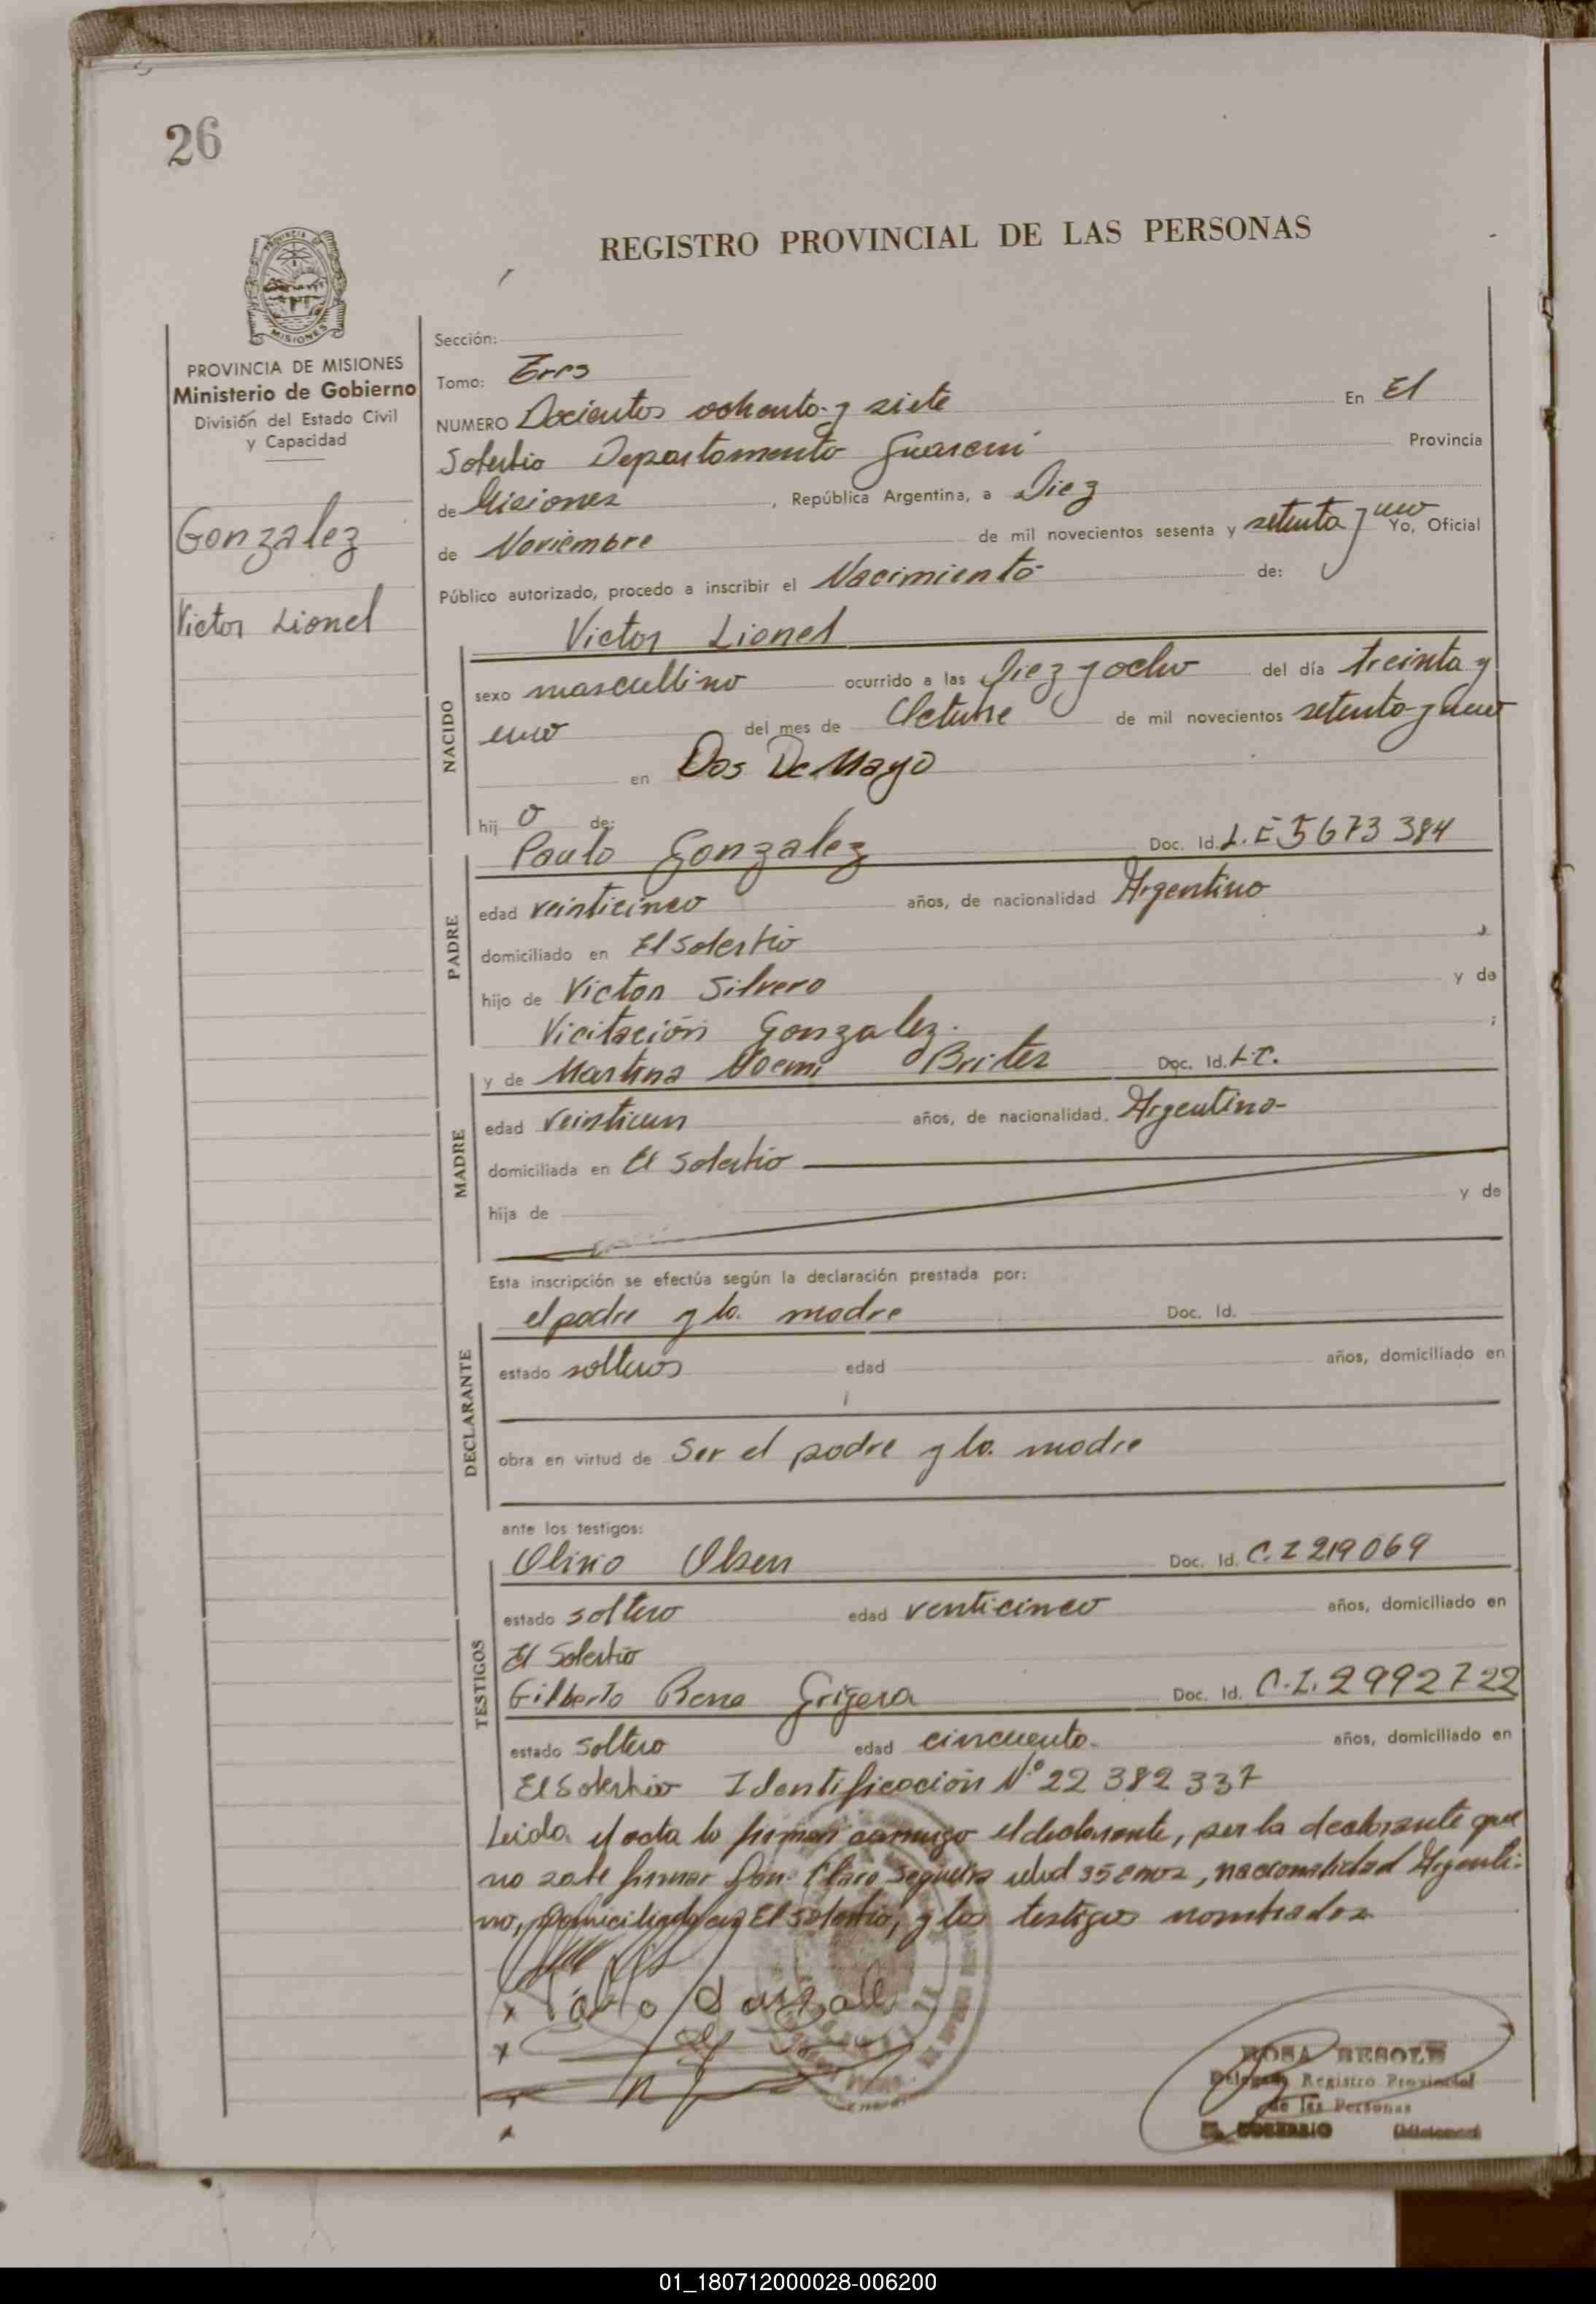 26
REGISTRO PROVINCIAL DE LAS PERSONAS
MISIONES
PROVINCIA DE MISIONES
Ministerio de Gobierno
División del Estado Civil
y Capacidad
Gonzalez
Victor Lionel
Sección:
Tomo: Tres
NUMERO Docientos ochenta y siete En El
Soberbio Departamento Guarani Provincia
de Misiones, República Argentina, a Diez
de Noviembre de mil novecientos sesenta y setenta y uno Yo, Oficial
Público autorizado, procedo a inscribir el Nacimiento de:
Victor Lionel
NACIDO
sexo mascullino ocurrido a las Diez y ocho del día treinta y
uno del mes de Octubre de mil novecientos setenta y uno
en Dos De Mayo
hijo de:
PADRE
Paulo Gonzalez Doc. Id. L.E 5673384
edad veinticinco años, de nacionalidad Argentino
domiciliado en El Soberbio
hijo de Victor Silvero y de
Vicitación Gonzalez. ;
MADRE
y de Martina Noemi Britez Doc. Id. L.C.
edad Veintiun años, de nacionalidad Argentina
domiciliada en El Soberbio
hija de y de
Esta inscripción se efectúa según la declaración prestada por:
DECLARANTE
el padre y la madre Doc. Id.
estado solteros edad años, domiciliado en
obra en virtud de Ser el padre y la madre
ante los testigos:
TESTIGOS
Olivio Olsen Doc. Id. C.I 219069
estado soltero edad venticinco años, domiciliado en
El Soberbio
Gilberto Rene Grigera Doc. Id. C.I. 2992722
estado soltero edad cincuenta años, domiciliado en
El Soberbio Identificación Nº 22382337
Leida el acta la firman conmigo el declarante, por la declarante que
no sabe firmar Don Claro edad 35 enos, nacionalidad Argenti-
no, Domiciliado en El Soberbio, y los testigos nombrados
ROSA BESOLD
Delegada Registro Provincial
de las Personas
EL SOBERBIO (Misiones)
01_180712000028-006200